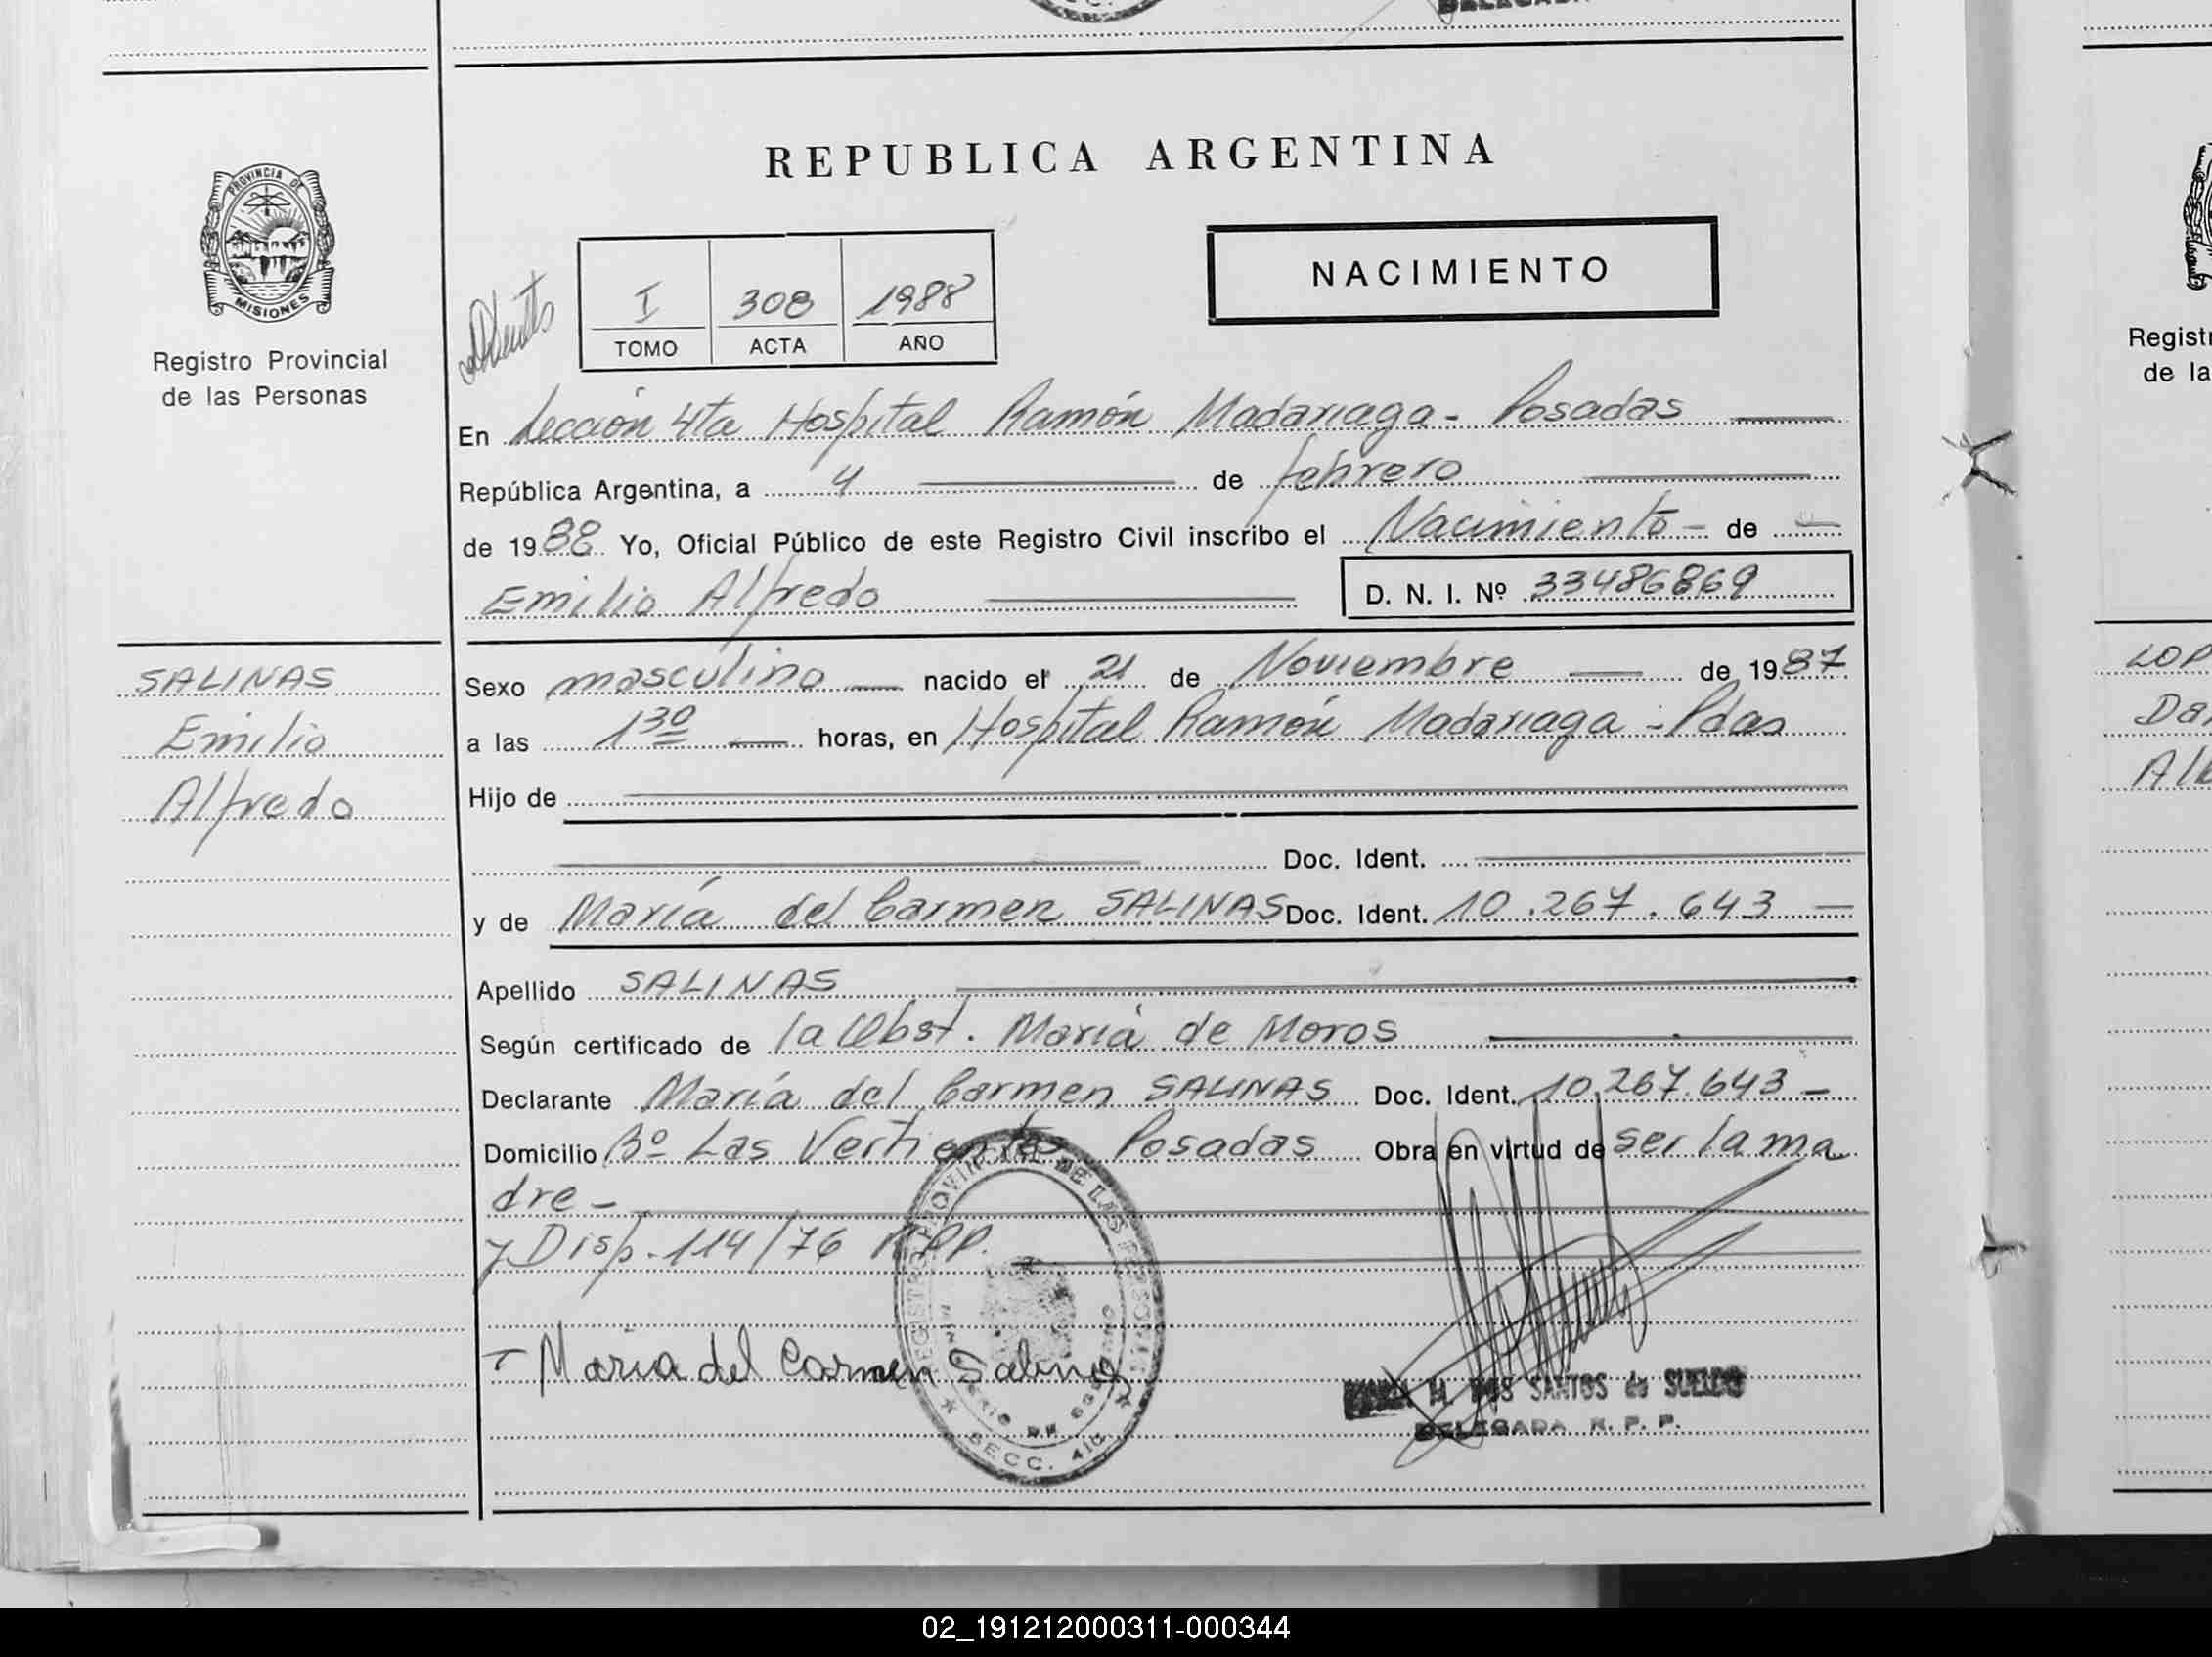 DELEGADA
REPUBLICA ARGENTINA
PROVINCIA DE
MISIONES
Registro Provincial
de las Personas
I 308 1988
TOMO ACTA AÑO
NACIMIENTO
En Sección 4ta Hospital Ramón Madariaga - Posadas
República Argentina, a 4 de febrero
de 1988 Yo, Oficial Público de este Registro Civil inscribo el Nacimiento - de
Emilio Alfredo D. N. I. Nº 33486869
SALINAS
Emilio
Alfredo
Sexo masculino nacido el 21 de Noviembre de 1987
a las 1 30 horas, en Hospital Ramón Madariaga - Pdas
Hijo de
Doc. Ident.
y de María del Carmen SALINAS Doc. Ident. 10.267.643
Apellido SALINAS
Según certificado de la Obst. María de Moros
Declarante María del Carmen SALINAS Doc. Ident. 10.267.643 -
Domicilio Bº Las Vertientes Posadas Obra en virtud de ser la ma
dre -
y Disp. 114/76 R.P.P.
María del Carmen Salinas
REGISTRO PROVINCIAL DE LAS PERSONAS
MINISTERIO DE GOBIERNO
SECC. 4ta
M. DOS SANTOS de SUELDO
DELEGADA R. P. P.
Regist
de la
LOP
Da
Al
02_191212000311-000344